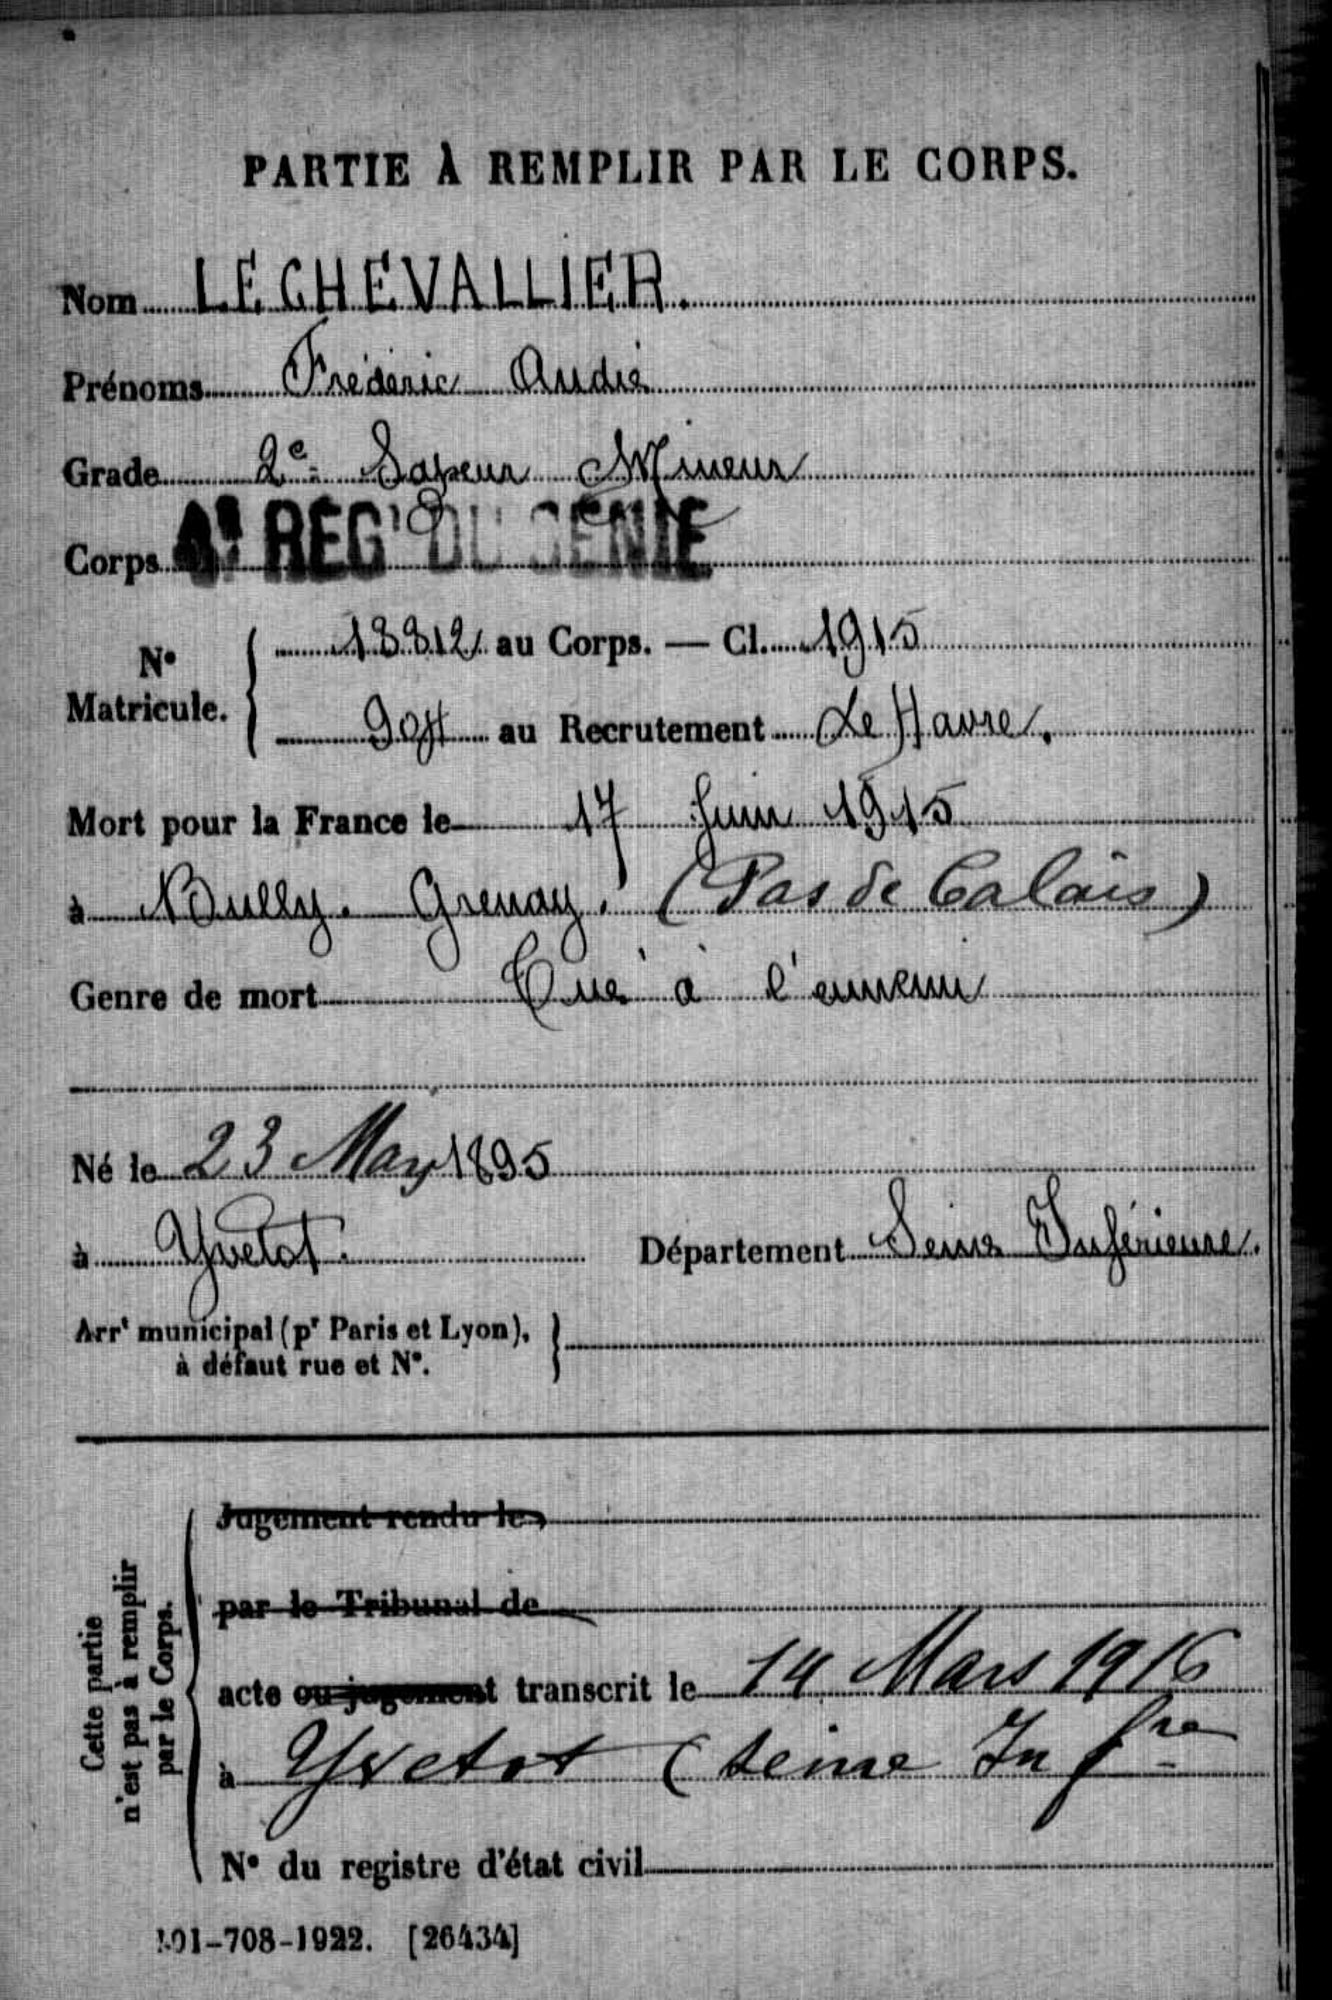 PARTIE À REMPLIR PAR LE CORPS.
Nom LECHEVALLIER.
Prénoms Frédéric André
Grade 2e Sapeur Mineur
Corps 4e REGt DU GENIE
No Matricule. 18812 au Corps. — Cl. 1915
904 au Recrutement Le Havre.
Mort pour la France le 17 Juin 1915
à Bully. Grenay. (Pas de Calais)
Genre de mort Tué à l'ennemi
Né le 23 May 1895
à Yvetot. Département Seine Inférieure.
Arrt municipal (pr Paris et Lyon),
à défaut rue et No.
Cette partie
n'est pas à remplir
par le Corps.
Jugement rendu le
par le Tribunal de
acte ou jugement transcrit le 14 Mars 1916
à Yvetot (Seine Infre
No du registre d'état civil
-708-1922. [26434]